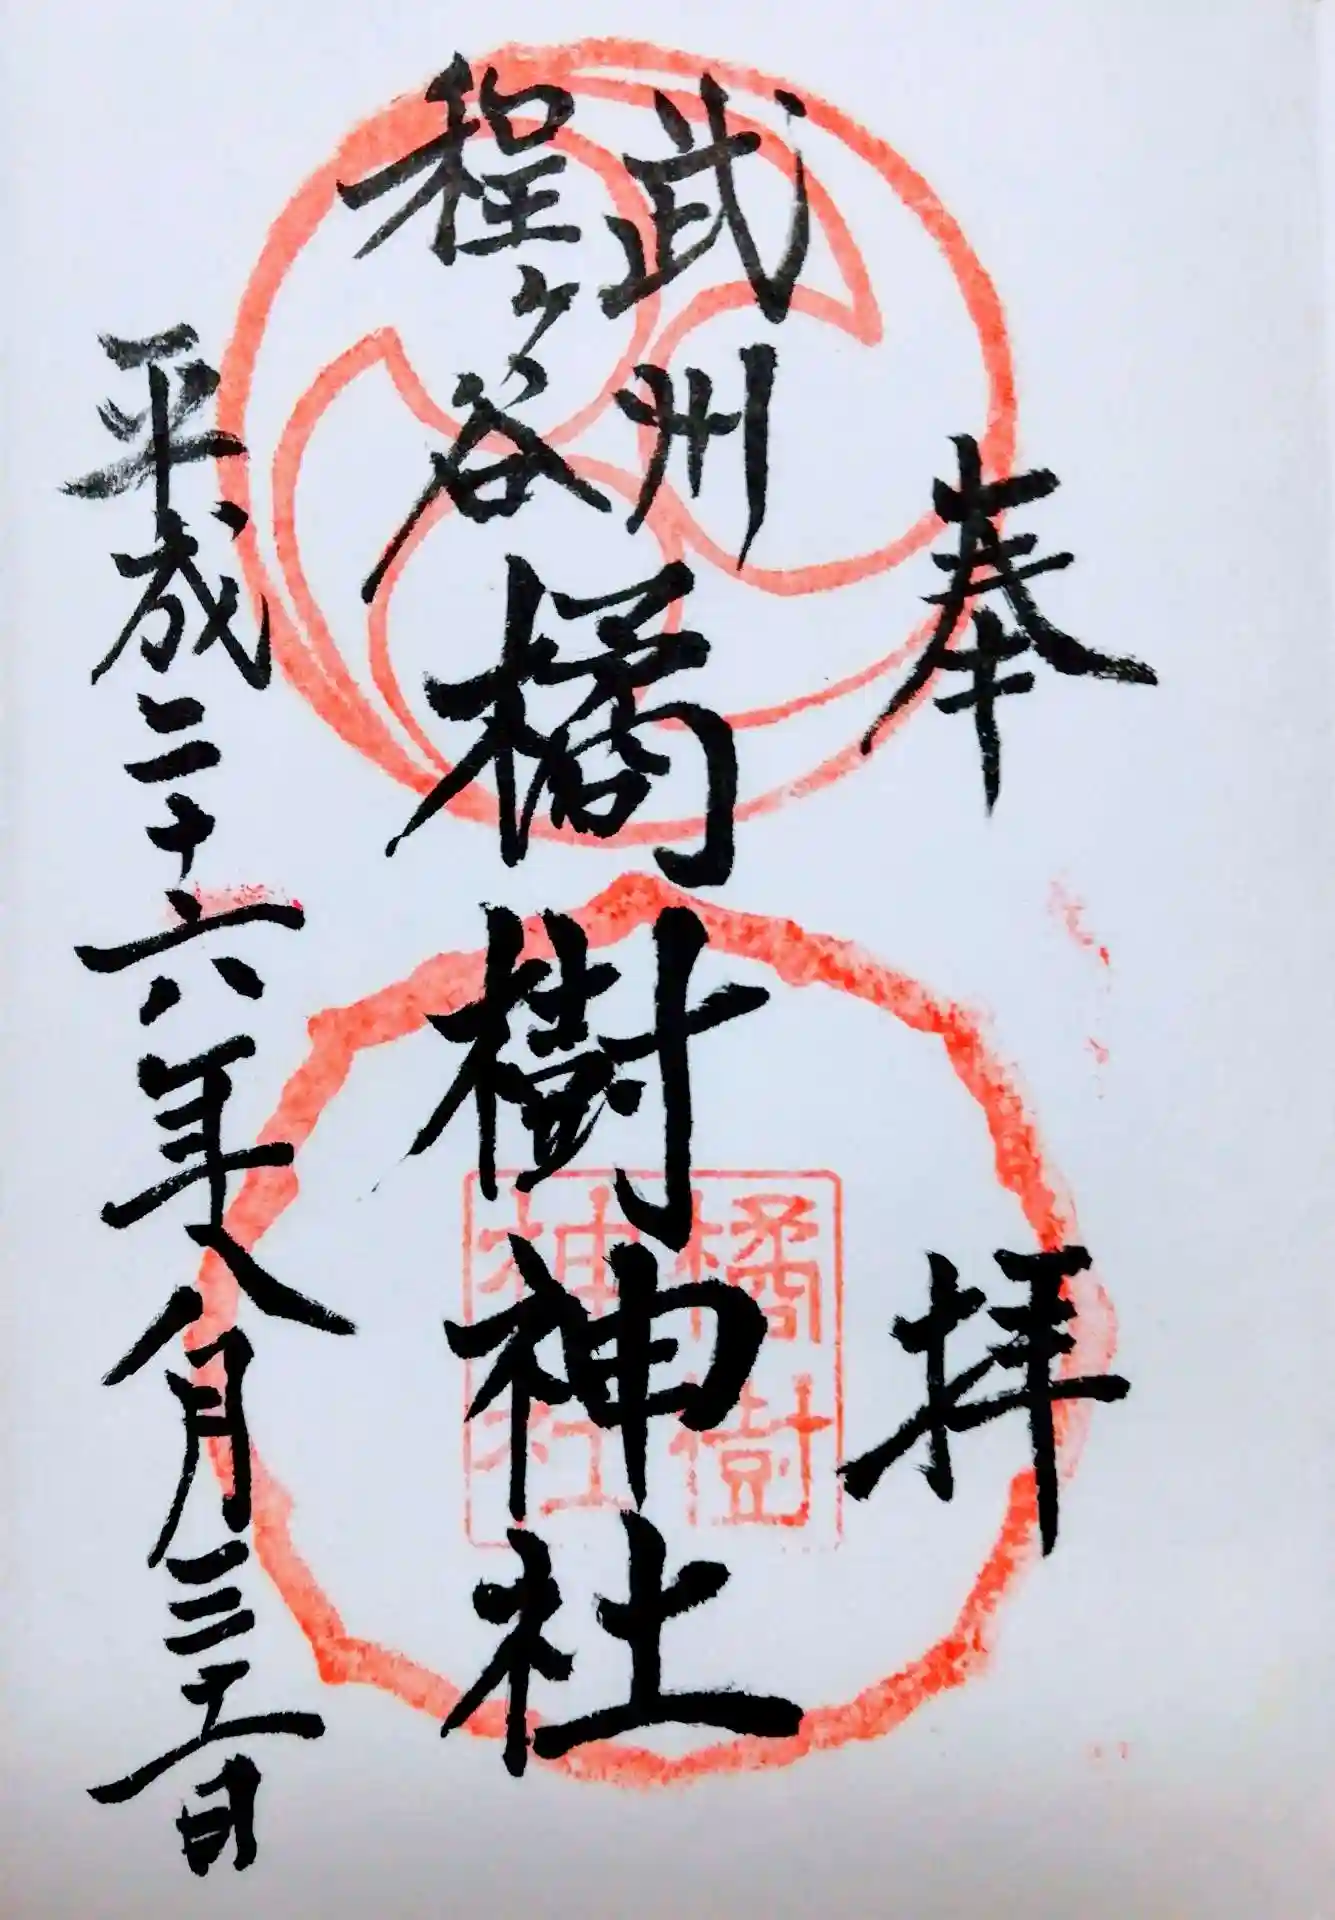 奉拝
武州
程ヶ谷橘樹神社
平成二十六年八月三十一日
橘樹
神社